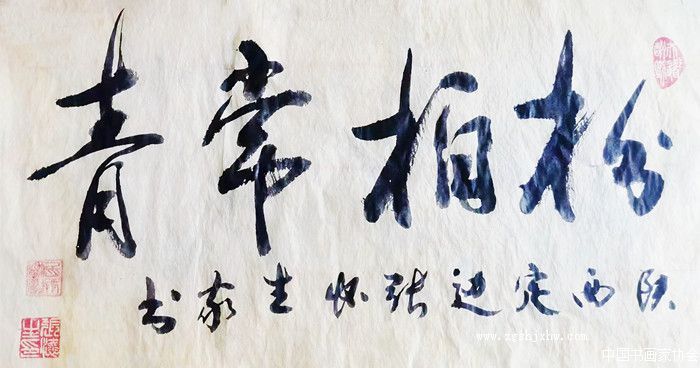 松柏常青
陕西定边张怀生敬书
www.zgshjxhw.com
中国书画家协会